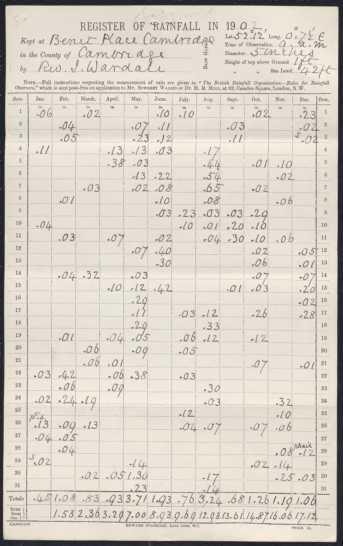 REGISTER OF RAINFALL IN 1907
Kept at Benet Place Cambridge
in the County of Cambridge
by Rev. J. Wardale
Rain Gauge
Lat. 52°12' Long. 0.7½ E
Time of Observation 9 a.m.
Diameter 5 inches
Height of top above Ground 1 ft
" " Sea Level 42 ft
NOTE.—Full instructions respecting the measurement of rain are given in "The British Rainfall Organization—Rules for Rainfall
Observers," which is sent post-free on application to Mr. SOWERBY WALLIS or Dr. H. R. MILL, at 62, Camden Square, London, N.W.
Date. Jan. Feb. March. April. May. June. July. Aug. Sept. Oct. Nov. Dec. Date.
1 .06 .02 .10 .10 .02 .23 1
2 .04 .07 .11 .03 .02 2
3 .05 .23 .12 .11 .02 3
4 .11 .13 .13 .03 .17 4
5 .38 .03 .44 .01 .10 5
6 .13 .22 .54 .02 6
7 .03 .02 .08 .65 .02 7
8 .01 .10 .08 .06 8
9 .03 .23 .03 .03 .29 9
10 .04 .10 .01 .20 .10 10
11 .03 .07 .02 .04 .30 .10 .06 11
12 .07 .40 .02 .05 12
13 .30 .06 .01 13
14 .04 .32 .03 .07 .07 14
15 .10 .12 .42 .01 .03 .20 15
16 .29 .02 16
17 .11 .03 .12 .26 .28 17
18 .29 .33 18
19 .01 .04 .05 .06 .12 .12 19
20 .06 .09 .05 20
21 .06 .01 .07 .01 21
22 .03 .42 .06 .38 .03 22
23 .06 .09 .30 23
24 .02 .24 .19 .03 .32 24
25 .12 .10 25
26 .13 .09 .13 .04 .07 .07 .06 26
27 .04 .05 27
28 .04 .08 .12 28
29 .02 .14 .02 .14 29
30 .02 .05 1.30 .17 .25 .03 30
31 .23 .14 31
Totals .45 1.08 .83 .93 3.71 1.93 .76 3.24 .68 1.26 1.19 1.06
Total from Jan. 1 1.53 2.36 3.29 7.00 8.93 9.69 12.93 13.61 14.87 16.06 17.12
EDWARD STANFORD, Long Acre, W.C.